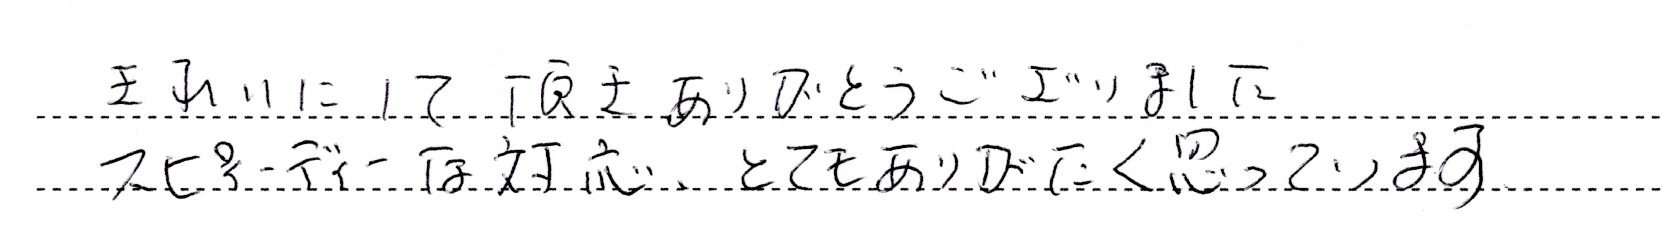 きれいにして頂きありがとうございました
スピーディーな対応、とてもありがたく思っています